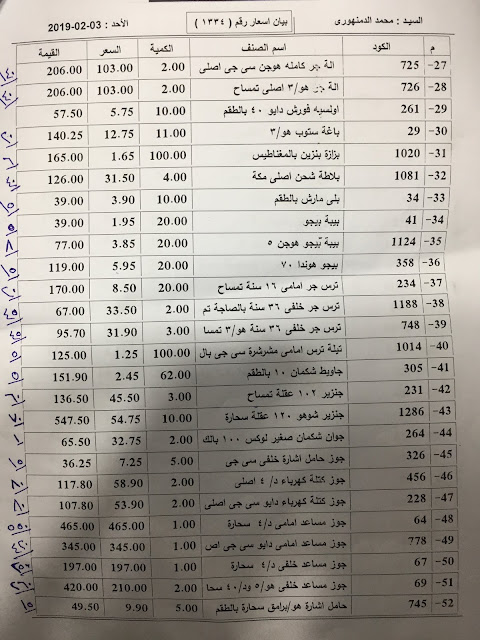 السيد : محمد الدمنهورى بيان اسعار رقم ( ١٣٣٤ ) الأحد : 03-02-2019
م الكود اسم الصنف الكمية السعر القيمة
27- 725 الة جر كامله هوجن سى جى اصلى 2.00 103.00 206.00
28- 726 الة جر هو/٣ اصلى تمساح 2.00 103.00 206.00
29- 261 اولسيه فورش دايو ٤٠ بالطقم 10.00 5.75 57.50
30- 29 باغة ستوب هو/٣ 11.00 12.75 140.25
31- 1020 بزازة بنزين بالمغناطيس 100.00 1.65 165.00
32- 1081 بلاطة شحن اصلى مكة 4.00 31.50 126.00
33- 34 بلى مارش بالطقم 10.00 3.90 39.00
34- 41 بيبة بيجو 20.00 1.95 39.00
35- 1124 بيبة بيجو هوجن ٥ 20.00 3.85 77.00
36- 358 بيجو هوندا ٧٠ 20.00 5.95 119.00
37- 234 ترس جر امامى ١٦ سنة تمساح 20.00 8.50 170.00
38- 1188 ترس جر خلفى ٣٦ سنة بالصاجة تم 2.00 33.50 67.00
39- 748 ترس جر خلفى ٣٦ سنة هو/٣ تمسا 3.00 31.90 95.70
40- 1014 تيلة ترس امامى مشرشرة سى جى بال 100.00 1.25 125.00
41- 305 جاويط شكمان ١٠ بالطقم 62.00 2.45 151.90
42- 231 جنزير ١٠٢ عقلة تمساح 3.00 45.50 136.50
43- 1286 جنزير شوهو ١٢٠ عقلة سحارة 10.00 54.75 547.50
44- 264 جوان شكمان صغير لوكس ١٠٠ بالك 2.00 32.75 65.50
45- 326 جوز حامل اشارة خلفى سى جى 5.00 7.25 36.25
46- 456 جوز كتلة كهرباء د/٤ اصلى 2.00 58.90 117.80
47- 228 جوز كتلة كهرباء دايو سى جى اصلى 2.00 53.90 107.80
48- 64 جوز مساعد امامى د/٤ سحارة 1.00 465.00 465.00
49- 778 جوز مساعد امامى دايو سى جى اص 1.00 345.00 345.00
50- 67 جوز مساعد خلفى د/٤ سحارة 1.00 197.00 197.00
51- 69 جوز مساعد خلفى هو/٥ ود/٤٠ سحا 2.00 210.00 420.00
52- 745 حامل اشارة هو/برامق سحارة بالطقم 5.00 9.90 49.50